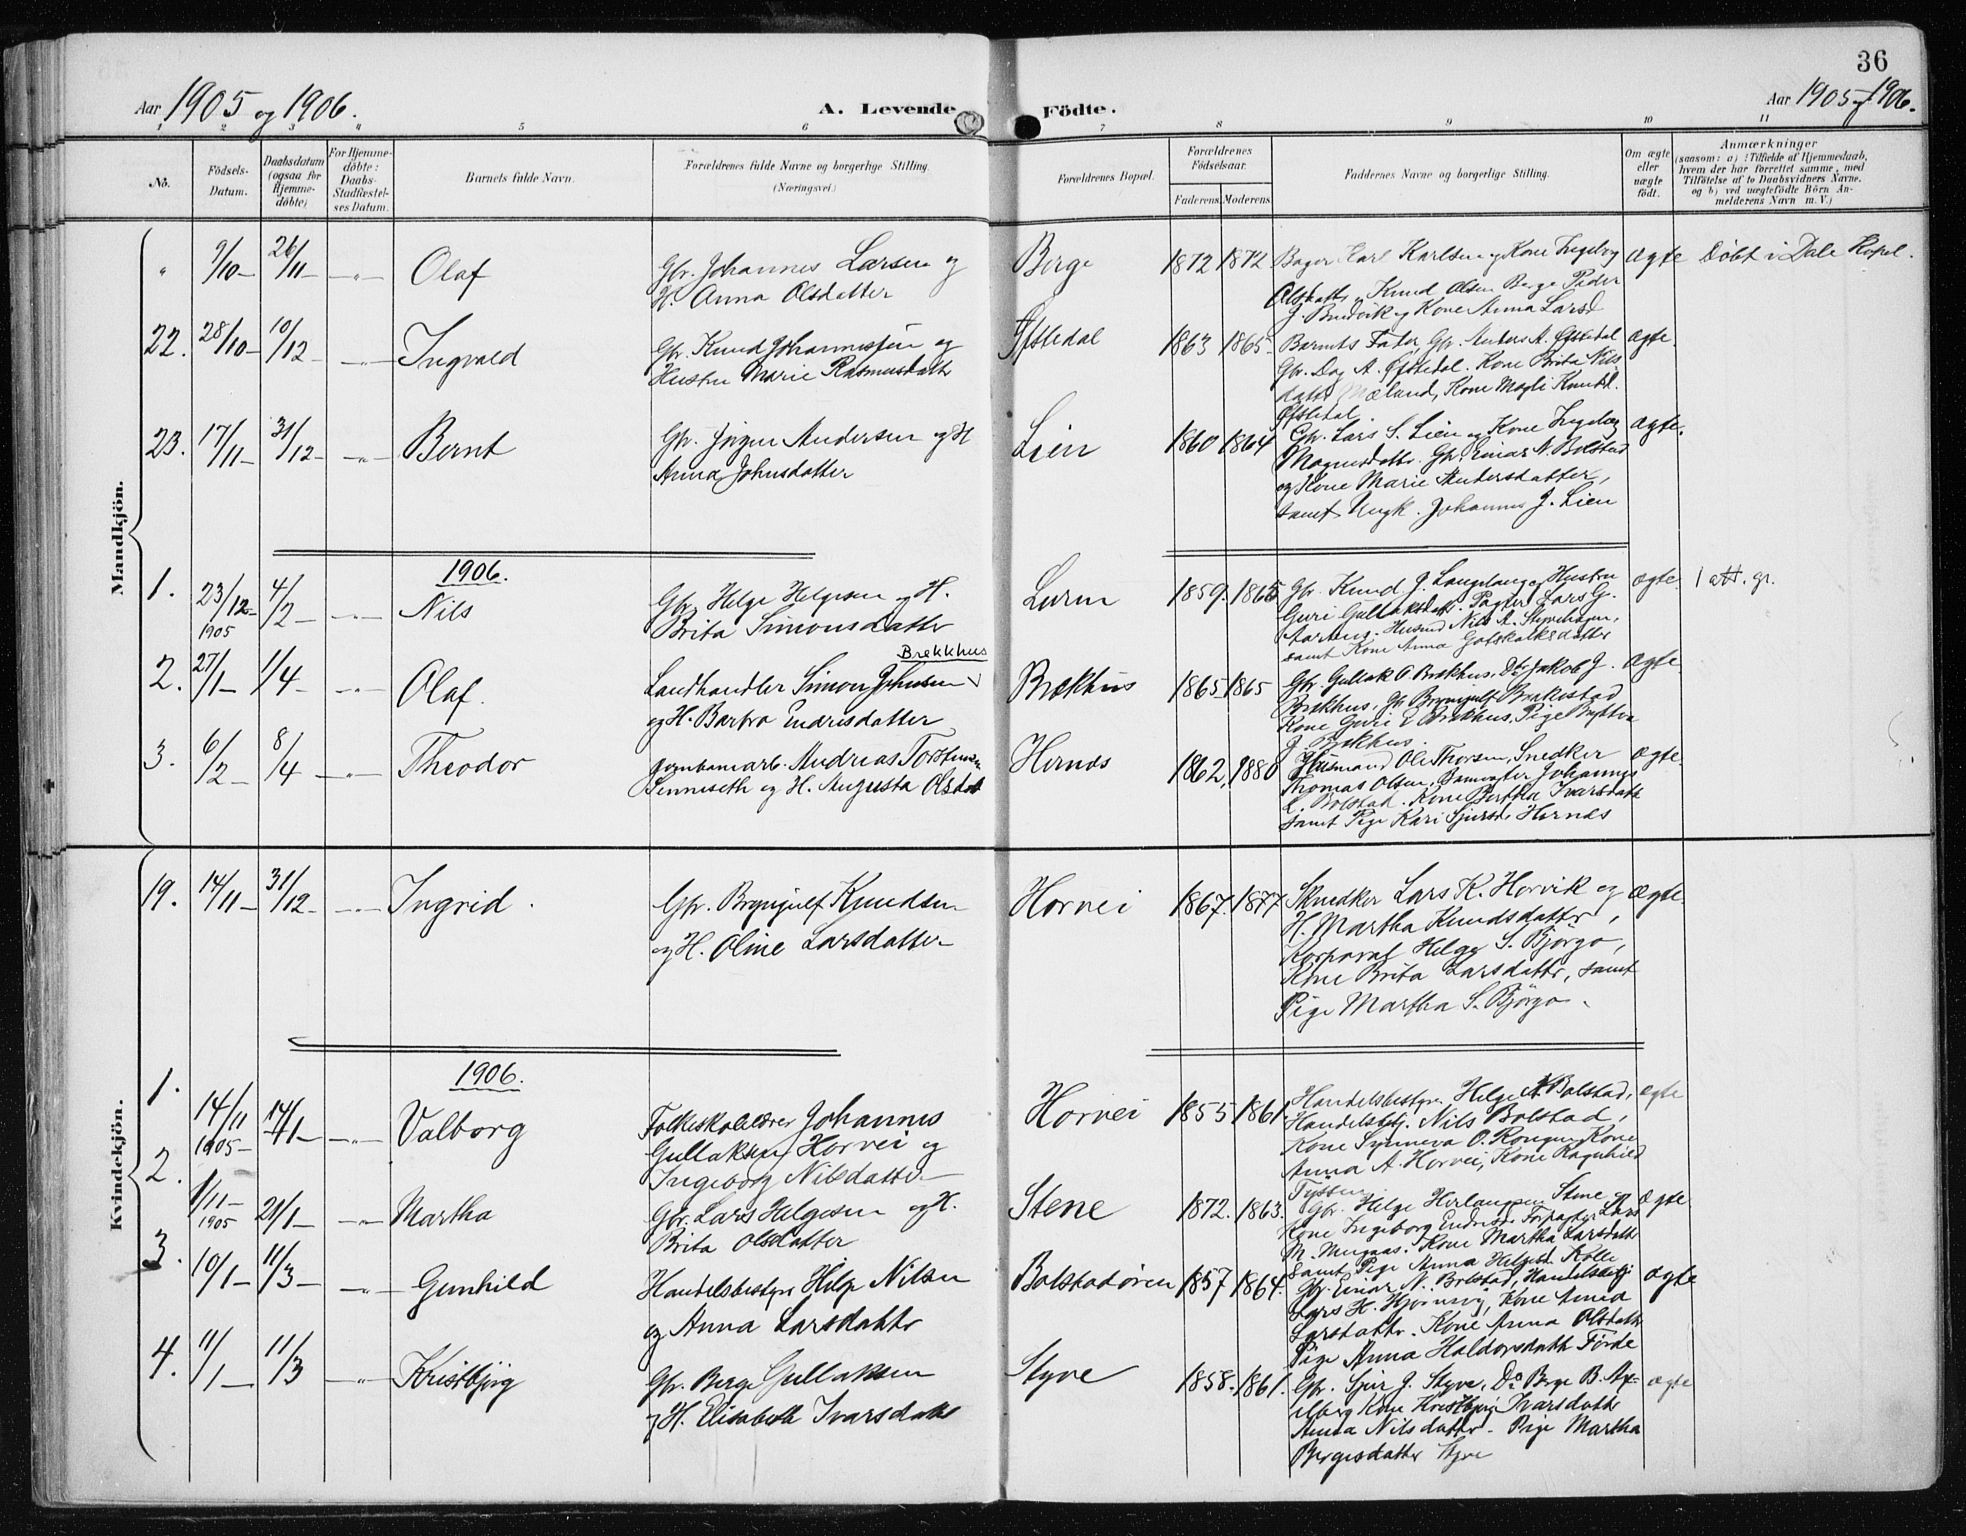 36
Aar 1905 og 1906.
A. Levende Födte.
Aar 1905 og 1906.
1 2 3 4 5 6 7 8 9 10 11
No.
Födsels-Datum.
Daabsdatum (ogsaa for Hjemme-döbte)
For Hjemme-döbte: Daabs-Stadfæstel-ses Datum.
Barnets fulde Navn.
Forældrenes fulde Navne og borgerlige Stilling.
(Næringsvei.)
Forældrenes Bopæl.
Forældrenes Födselsaar.
Faderens. Moderens.
Faddernes Navne og borgerlige Stilling.
Om ægte eller uægte födt.
Anmærkninger
(saasom: a) i Tilfælde af Hjemmedaab,
hvem der har forrettet samme, med
Tilföielse af to Daabsvidners Navne.
og b) ved uægtefödte Börn An-
melderens Navn m. V.)
Mandkjön.
" 9/10 26/11 Olaf Gbr. Johannes Larsen og Berge 1872 1872 Bager Karl Karlsen og Kone Ingeborg ægte Döbt i Dale Kapel.
H. Anna Olsdatter
Olsdatter, Knud Olsen Berge Peder
J. Bredvik og Kone Anna Larsd
22. 28/10 10/12 Ingvald Gbr. Knud Johannessen og Öfstedal 1863 1865 Barnets Fader, Gbr. Anders A. Öfstedal ægte.
Hustru Marie Rasmusdatter
Gbr. Dag A. Öfstedal. Kone Brita Nils
datter Mæland, Kone Magli Knudsd.
Öfstedal.
23. 17/11 31/12 Bernt Gbr. Jörgen Andersen og H Lien 1860 1864 Gbr. Lars S. Lien og Kone Ingeborg ægte.
Anna Johnsdatter
Magnusdatter. Gbr. Einar N. Bolstad
og Kone Marie Andersdatter,
samt Ungk. Johannes J. Lien
1906.
1. 23/12 1905 4/2 Nils Gbr. Helge Helgesen og H. Lurn 1859. 1865 Gbr. Knud J. Langeland og Hustru ægte 1 att. gr.
Brita Simonsdatter
Guri Gullaksdatter. Lars G.
Husmd Nils A.
samt Kone Anna Gotskalksdatter
Brekkhus
2. 27/1 1/4 Olaf. Landhandler Simon Johnsen Brækhus 1865 1865 Gbr. Gullak O. Brækhus, Do Jakob J. ægte
og H. Barbro Endresdatter
Brækhus, Gbr Brynjulf Brækhus
Kone Guri E Brækhus, Pige
J. Brækhus.
3. 6/2 8/4 Theodor Jernbanearb. Andreas Torstensen Hernes 1862, 1880 Husmand Ole Thorsen, Snedker ægte
Tenneseth og H. Augusta Olsdat
Thomas Olsen, Banevogter Johannes
L. Bolstad. Kone Bertha Ivarsdatter
samt Pige Kari Sjursd. Hernes
Kvindekjön.
19. 14/11 31/12 Ingrid. Gbr. Brynjulf Knudsen Horvei 1867. 1877 Snedker Lars K. Horvik og ægte.
og H. Oline Larsdatter
H. Martha Knudsdatter,
Helge S. Björgo,
Kone Brita Larsdatter, samt
Pige Martha S. Björgo.
1906.
1. 14/11 1905 14/1 Valborg Folkeskolelærer Johannes Horvei 1855 1861. Handelsbestyr. Helge N Bolstad, ægte
Gullaksen Horvei og
Ingeborg Nilsdatter
Handelsbetj. Nils Bolstad,
Kone Synneva O. Rongen Kone
Anna A. Horvei, Kone Ragnhild
Tyssen
2. 1/11 1905 21/1 Martha Gbr. Lars Helgesen og H. Stene 1872. 1863. Gbr. Helge Herlaugsen Stene ægte
Brita Olsdatter
Kone Ingeborg Endresd. Forpagter Lars
M. Kone Martha Larsdatter
samt Pige Anna Helgesd. Kolle
3. 10/1 11/3 Gunhild Handelsbestyr Helge Nilsen Bolstadören 1857 1864. Gbr. Einar N. Bolstad, Handelsbetj ægte
og Anna Larsdatter
Lars H. Kone Anna
Larsdatter. Kone Anna Olsdatter
Pige Anna Haldorsdatter Förde
4. 11/1 11/3 Kristbjörg Gbr. Berge Gullaksen Styve 1858. 1861. Gbr. Sjur J. Styve, Do Berge B. Ax- ægte
og H. Elisabeth Ivarsdatter
elberg Kone Kristbjörg Ivarsdatter
Anna Nilsdatter. Pige Martha
Bergesdatter Styve